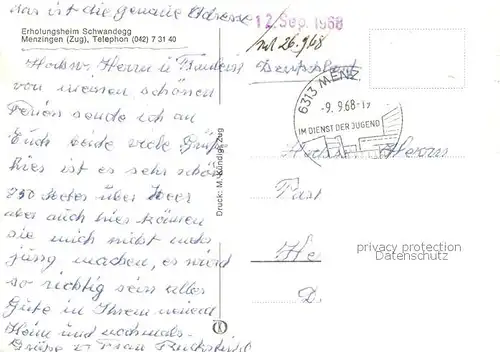 das ist die genaue Adresse
Erholungsheim Schwandegg
Menzingen (Zug), Telephon (042) 7 31 40
12. Sep. 1968
26.9.68
Hochw. Herrn u
von meinen schönen
Ferien sende ich an
Euch beide viele Grüße
hier ist es sehr schön
850 Meter über Meer
aber auch hier können
sie mich nicht mehr
jung machen, es wird
so richtig sein alles
Gute in Ihrem neuen
Heim und nochmals
Grüße v. Frau
Deutschland
6313 MENZ
-9. 9.68-17
IM DIENST DER JUGEND
Hochw. Herrn
He
D
Druck: M. Kündig, Zug
privacy protection
Datenschutz